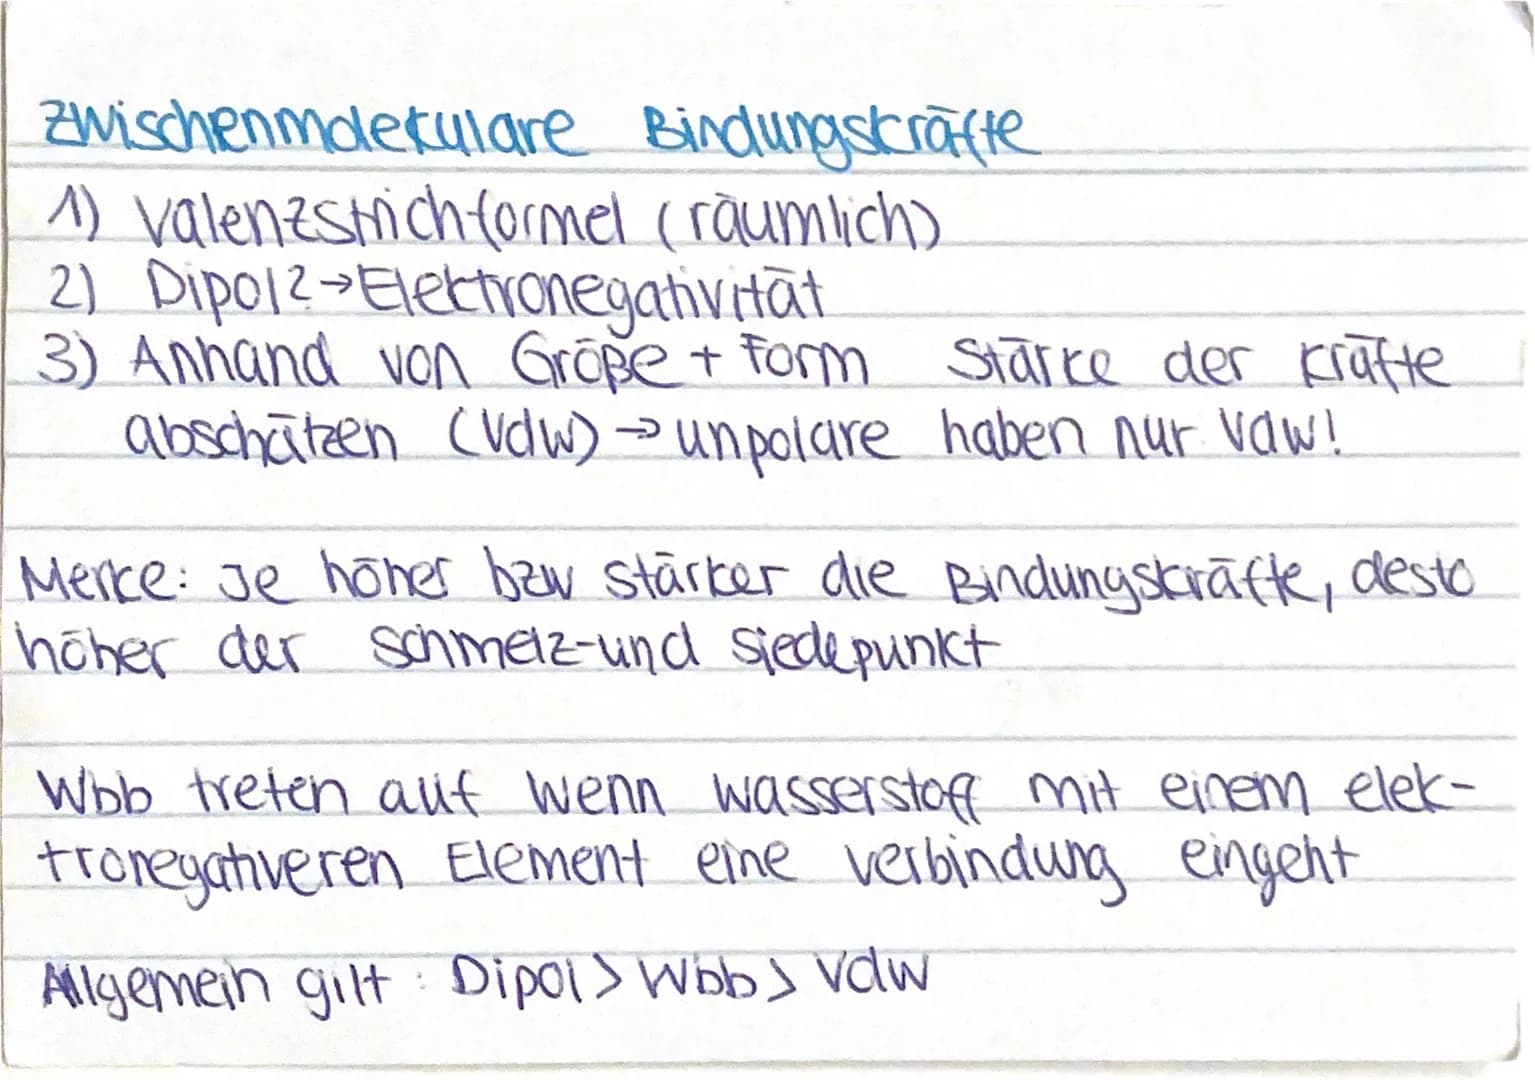 Zwischenmolekulare Bindungskräfte
1) Valenzstrichformel (räumlich)
2) Dipol? → Elektronegativität
3) Anhand von Größe + Form Stärke der Kräfte
abschätzen (Vdw) → unpolare haben nur Vdw!
Merke: Je höher bzw stärker die Bindungskräfte, desto
höher der Schmelz-und Siedepunkt
Wbb treten auf wenn Wasserstoff mit einem elek-
tronegativeren Element eine Verbindung eingeht
Allgemein gilt: Dipol > Wbb > Vdw